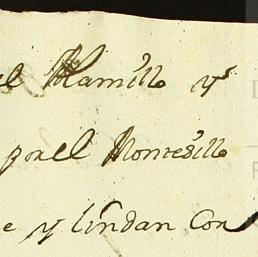 el Llamillo y
por el Montesillo
e y lindan Con